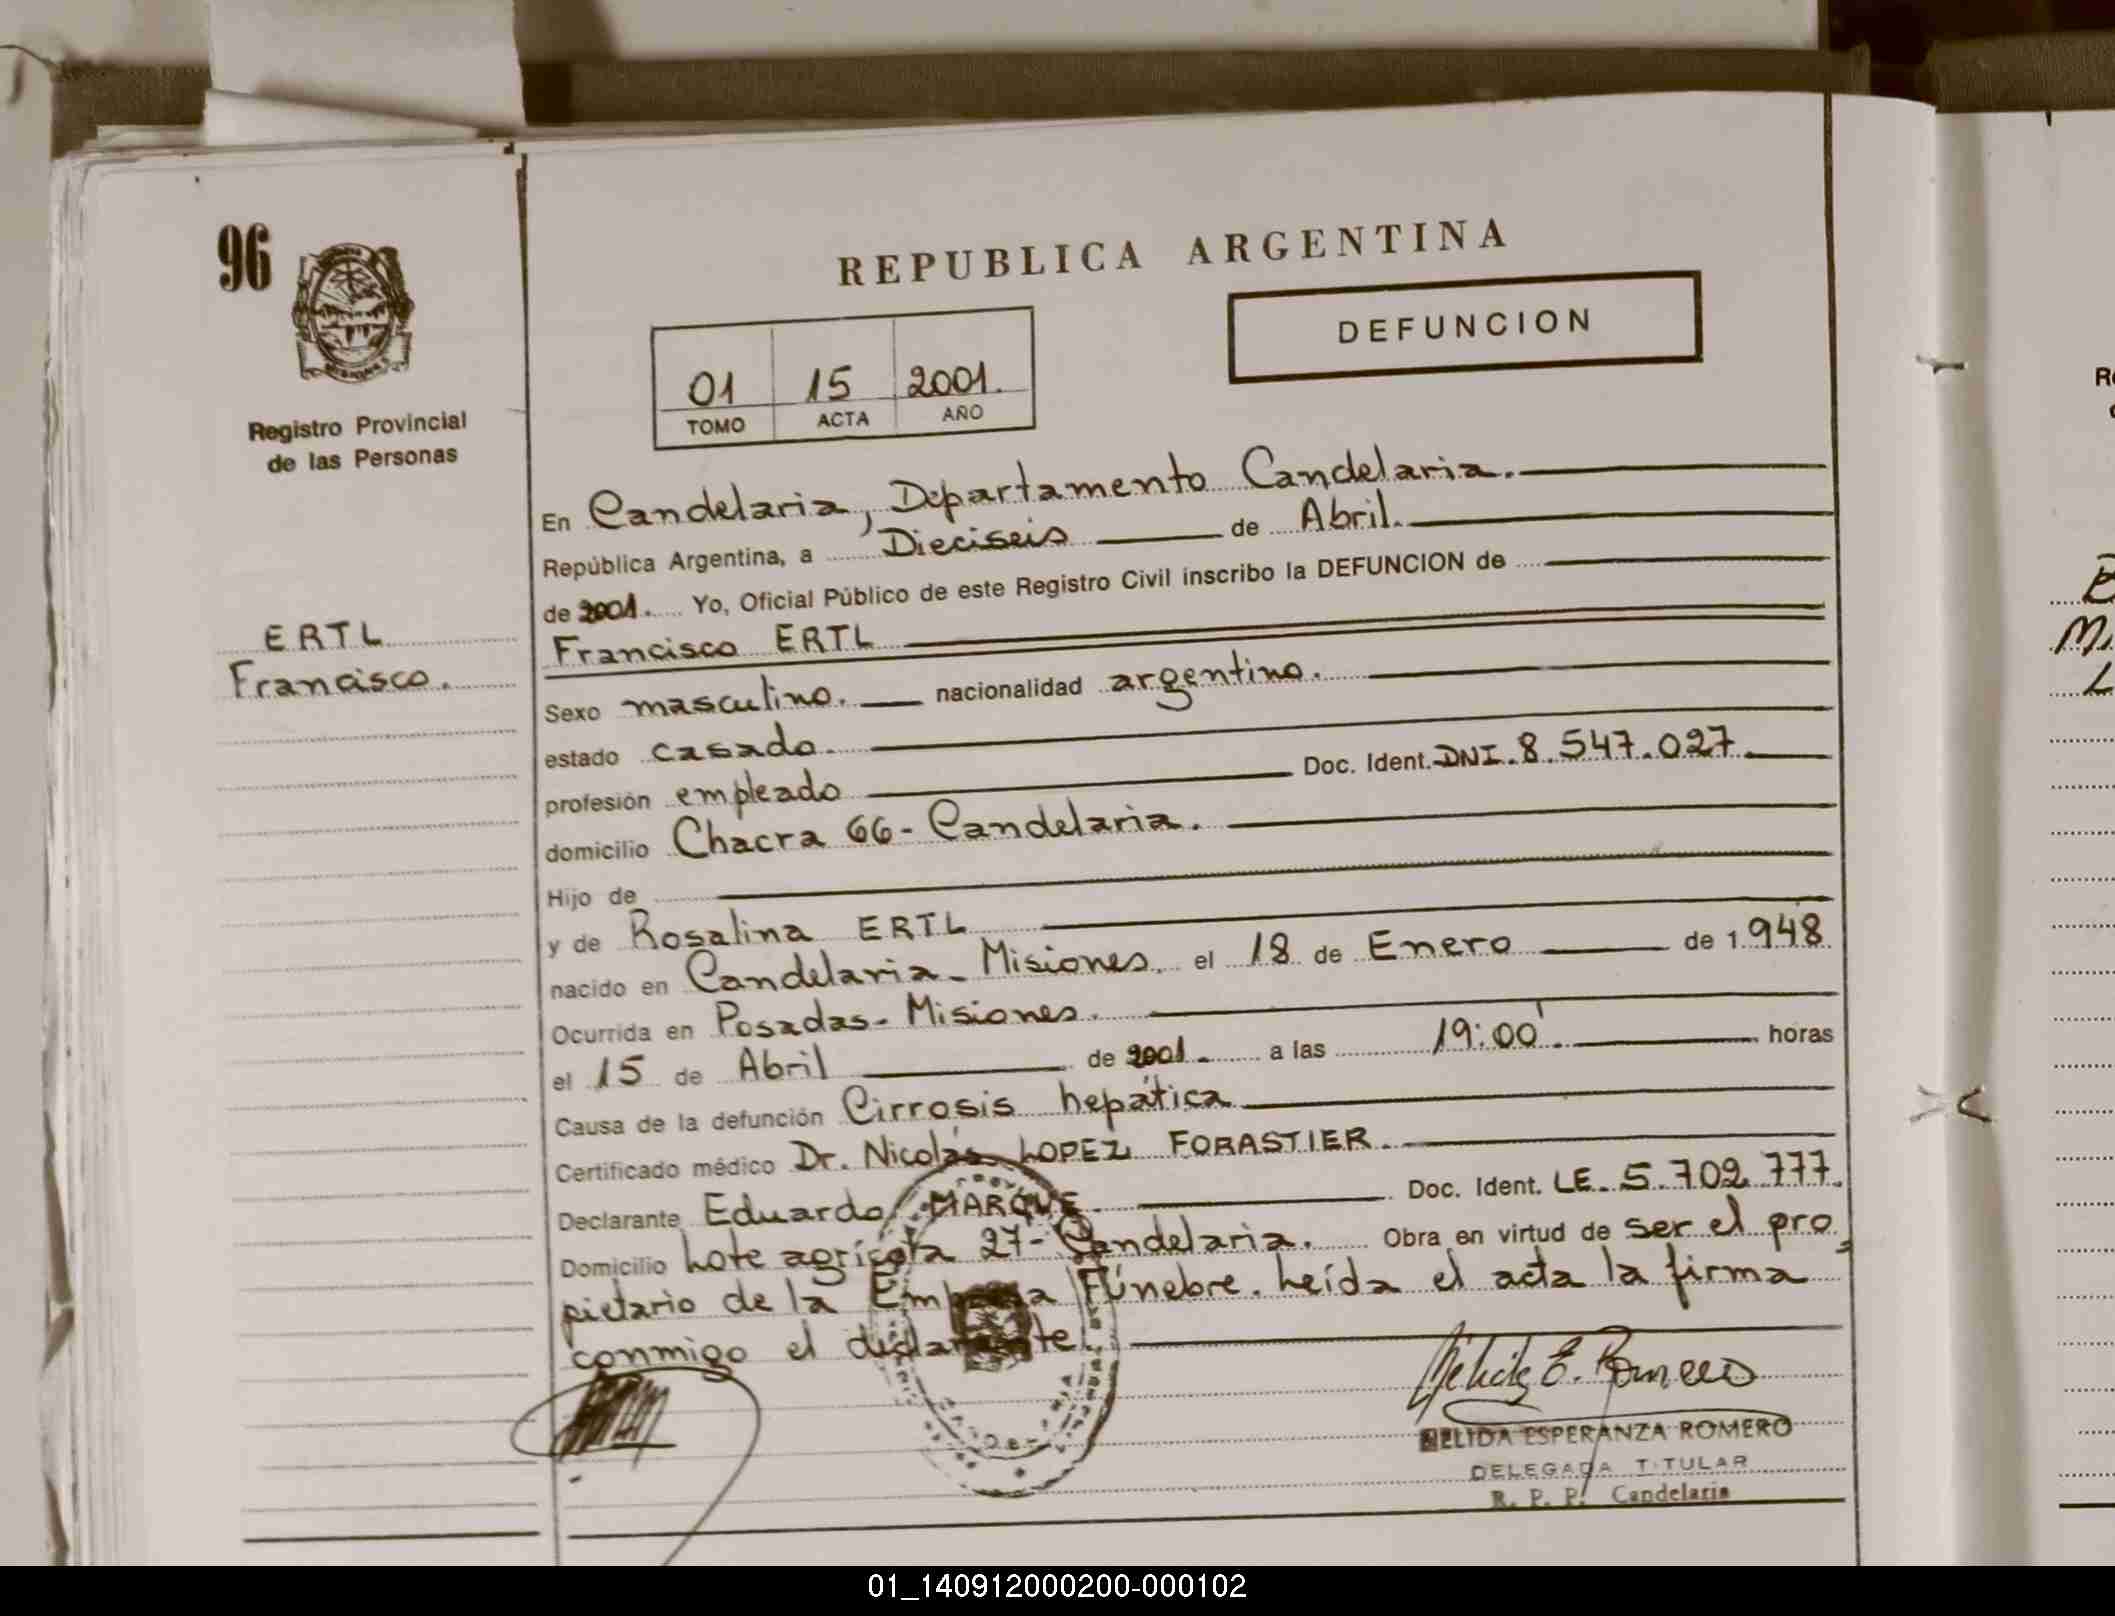 96
Registro Provincial
de las Personas
ERTL
Francisco.
REPUBLICA ARGENTINA
DEFUNCION
01 15 2001.
TOMO ACTA AÑO
En Candelaria, Departamento Candelaria.
República Argentina, a Dieciseis de Abril.
de 2001. Yo, Oficial Público de este Registro Civil inscribo la DEFUNCION de
Francisco ERTL
Sexo masculino. nacionalidad argentino.
estado casado.
profesión empleado Doc. Ident. DNI. 8.547.027
domicilio Chacra 66 - Candelaria.
Hijo de
y de Rosalina ERTL
nacido en Candelaria - Misiones. el 18 de Enero de 1.948
Ocurrida en Posadas - Misiones.
el 15 de Abril de 2001. a las 19:00'. horas
Causa de la defunción Cirrosis hepática
Certificado médico Dr. Nicolás LOPEZ FORASTIER.
Declarante Eduardo MARQUE. Doc. Ident. LE. 5.702.777.
Domicilio Lote agrícola 27 - Candelaria. Obra en virtud de ser el pro
pietario de la Empresa Fúnebre. Leída el acta la firma
conmigo el declarante.
Nélida E. Romero
NELIDA ESPERANZA ROMERO
DELEGADA TITULAR
R. P. P. Candelaria
01_140912000200-000102